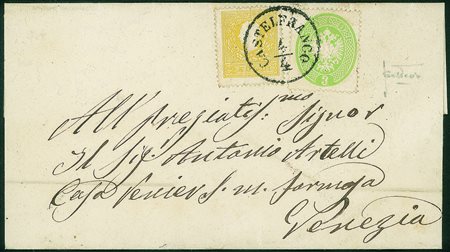 CASTELFRANCO
4/4
3
All pregiatis.mo Signor
Il Sig.r Antonio Artelli
Casa Venier S. m. formosa
Venezia